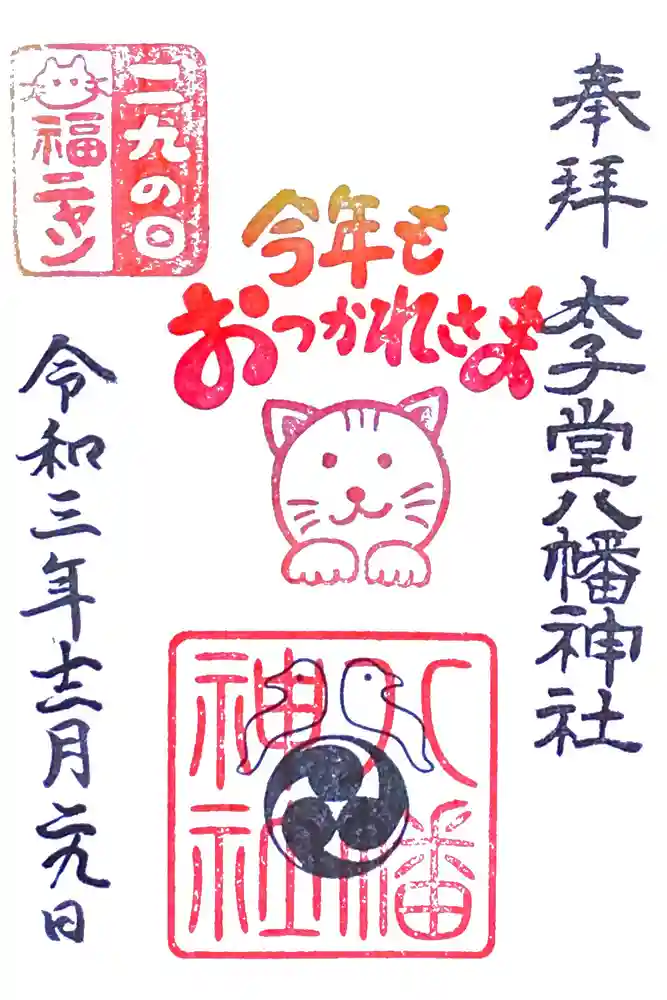 奉拝
太子堂八幡神社
今年も
おつかれさま
二九の日
福ニャン
八幡
神社
令和三年十二月二九日